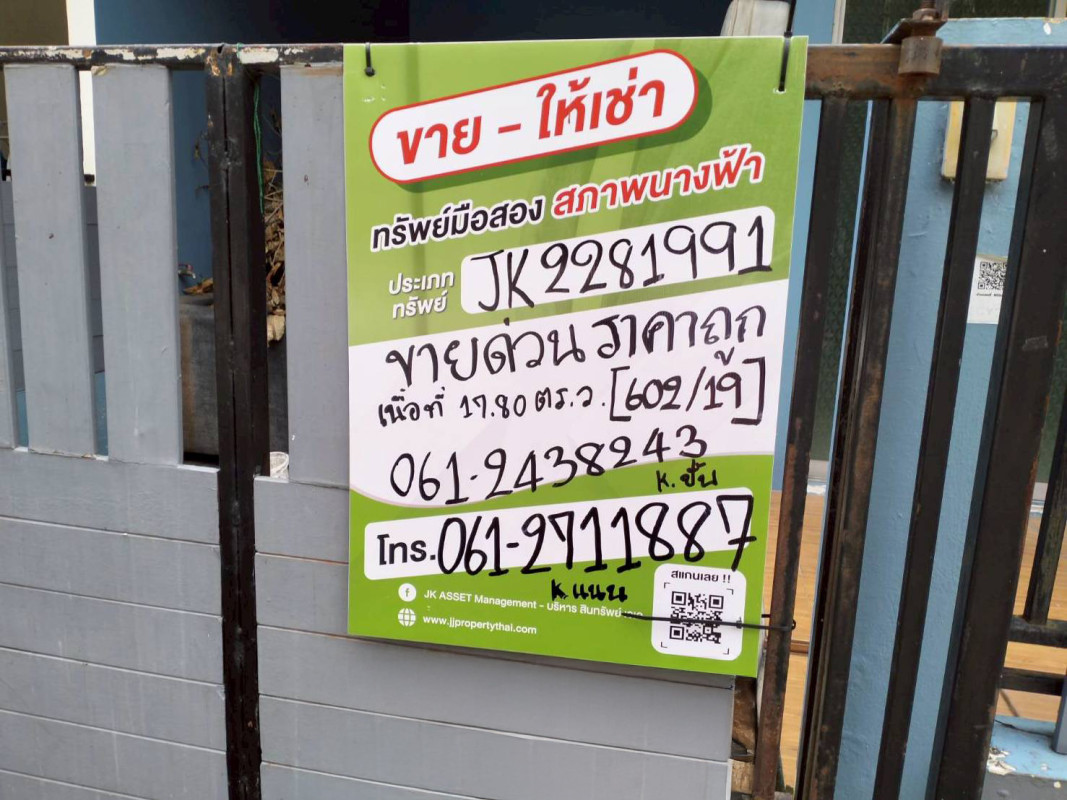 ขาย - ให้เช่า
ทรัพย์มือสอง สภาพนางฟ้า
ประเภท
ทรัพย์
JK2281991
ขายด่วน ราคาถูก
เนื้อที่ 17.80 ตร.ว. [602/19]
061-2438243
โทร. 061-2711887
K.แนน
สแกนเลย !!
JK ASSET Management - บริหาร สินทรัพย์
www.jjpropertythai.com